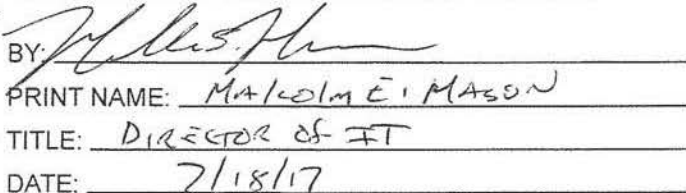 BY:
PRINT NAME: Malcolm E. MASON
TITLE: DIRECTOR OF IT
DATE: 7/18/17